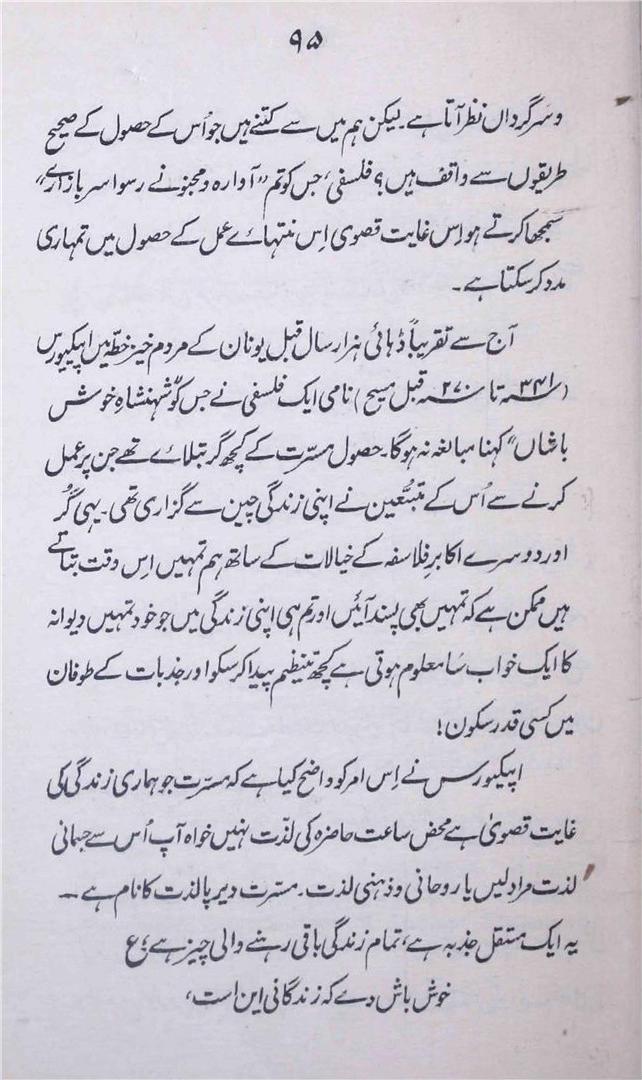 ۹۵
و سرگرداں نظر آتا ہے۔ لیکن ہم میں سے کتنے ہیں جو اُس کے حصول کے صحیح
طریقوں سے واقف ہیں؟ فلسفی، جس کو تم ”آوارہ و مجنونے رسوا سر بازارے“
سمجھا کرتے ہو اِس غایت قصویٰ اِس منتہائے عمل کے حصول میں تمہاری
مدد کر سکتا ہے۔
آج سے تقریباً ڈہائی ہزار سال قبل یونان کے مردم خیز خطّہ میں اپیکیورس
(۳۴۱؁ تا ۲۷۰؁ قبل مسیح) نامی ایک فلسفی نے جس کو ”شہنشاہِ خوش
باشاں“ کہنا مبالغہ نہ ہوگا۔ حصول مسرّت کے کچھ گر بتلائے تھے جن پر عمل
کرنے سے اُس کے متبعّین نے اپنی زندگی چین سے گزاری تھی۔ یہی گُر
اور دوسرے اکابر فلاسفہ کے خیالات کے ساتھ ہم تمہیں اس وقت بتاتے
ہیں ممکن ہے کہ تمہیں بھی پسند آئیں اور تم ہی اپنی زندگی میں جو خود تمہیں دیوانہ
کا ایک خواب سا معلوم ہوتی ہے کچھ تنظیم پیدا کر سکو اور جذبات کے طوفان
میں کسی قدر سکون!
اپیکیورس نے اِس امر کو واضح کیا ہے کہ مسرّت جو ہماری زندگی کی
غایت قصویٰ ہے محض ساعت حاضرہ کی لذّت نہیں خواہ آپ اُس سے جسمانی
لذت مراد لیں یا روحانی و ذہنی لذت۔ مسرّت دیرپا لذت کا نام ہے ــ
یہ ایک مستقل جذبہ ہے، تمام زندگی باقی رہنے والی چیز ہے؛ ع
خوش باش دمے کہ زندگانی این است،